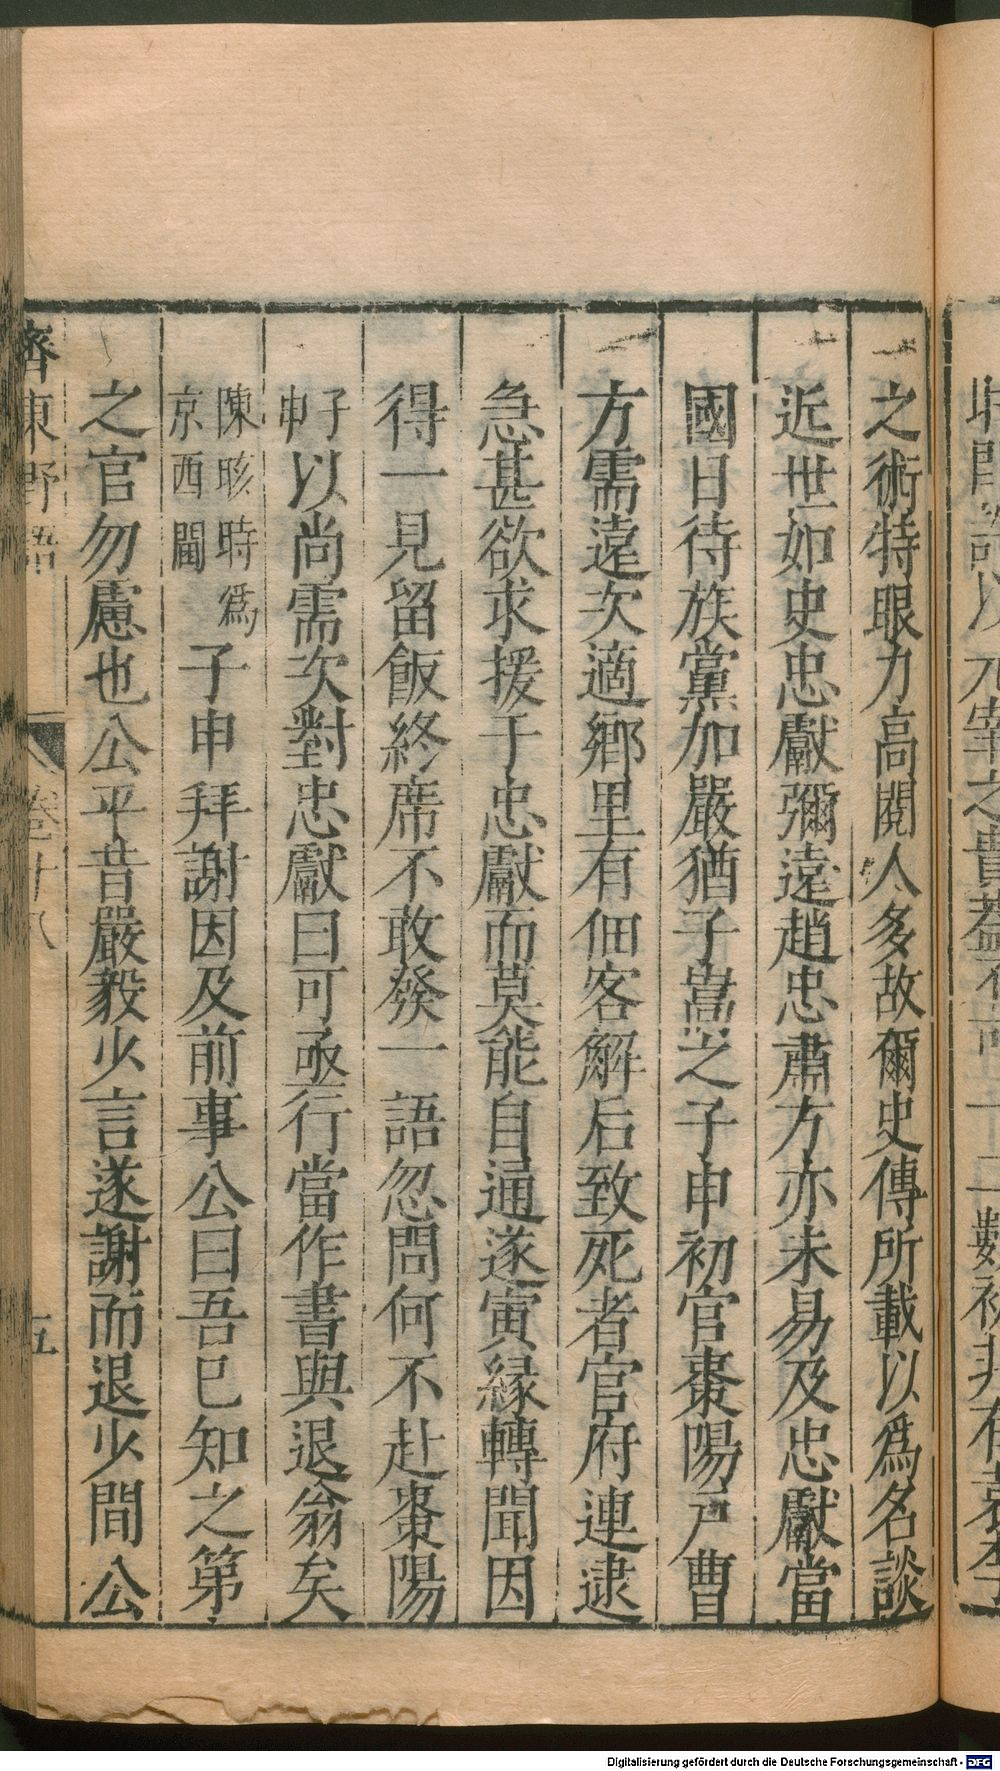 之術特眼力高閱人多故爾史傳所載以爲名談
近世如史忠獻彌遠趙忠肅方亦未易及忠獻當
國日待族黨加嚴猶子嵩之子申初官棗陽戶曹
方需遠次適鄉里有佃客解后致死者官府連逮
急甚欲求援于忠獻而莫能自通遂寅緣轉聞因
得一見留飯終席不敢發一語忽問何不赴棗陽
子申以尚需次對忠獻曰可亟行當作書與退翁矣
陳晐時爲京西閫子申拜謝因及前事公曰吾已知之第
之官勿慮也公平昔嚴毅少言遂謝而退少間公
齊東野語 卷十八 五
Digitalisierung gefördert durch die Deutsche Forschungsgemeinschaft - DFG